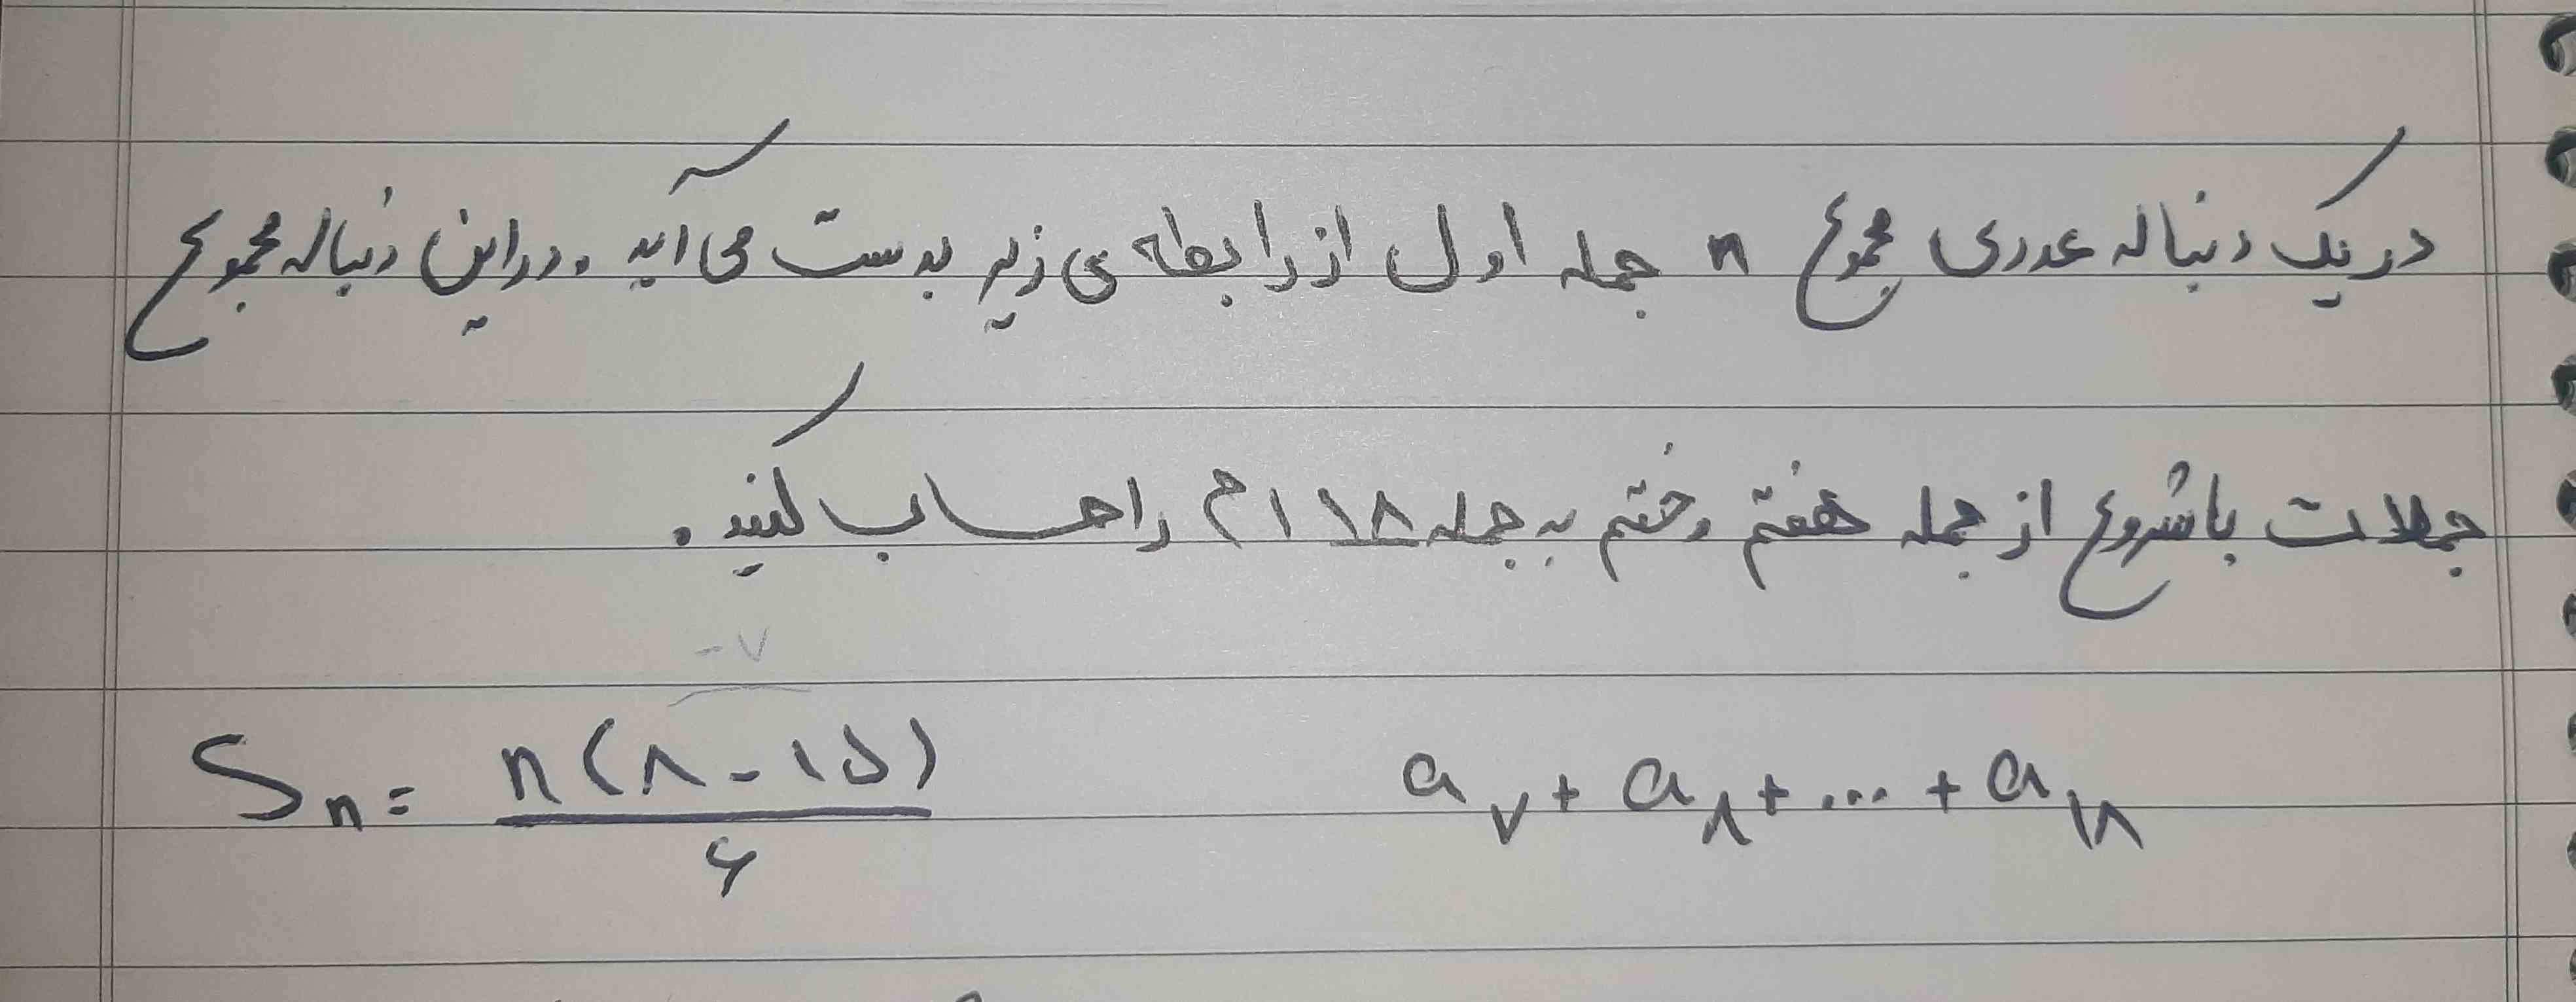 در یک دنباله عددی مجموع n جمله اول از رابطه ی زیر بدست می آید . در این دنباله مجموع
جملات با شروع از جمله هفتم و ختم به جمله ۱۸ ام را حساب کنید .
-۷
Sn = n(۸-۱۵) / ۶    a۷ + a۸ + ... + a۱۸